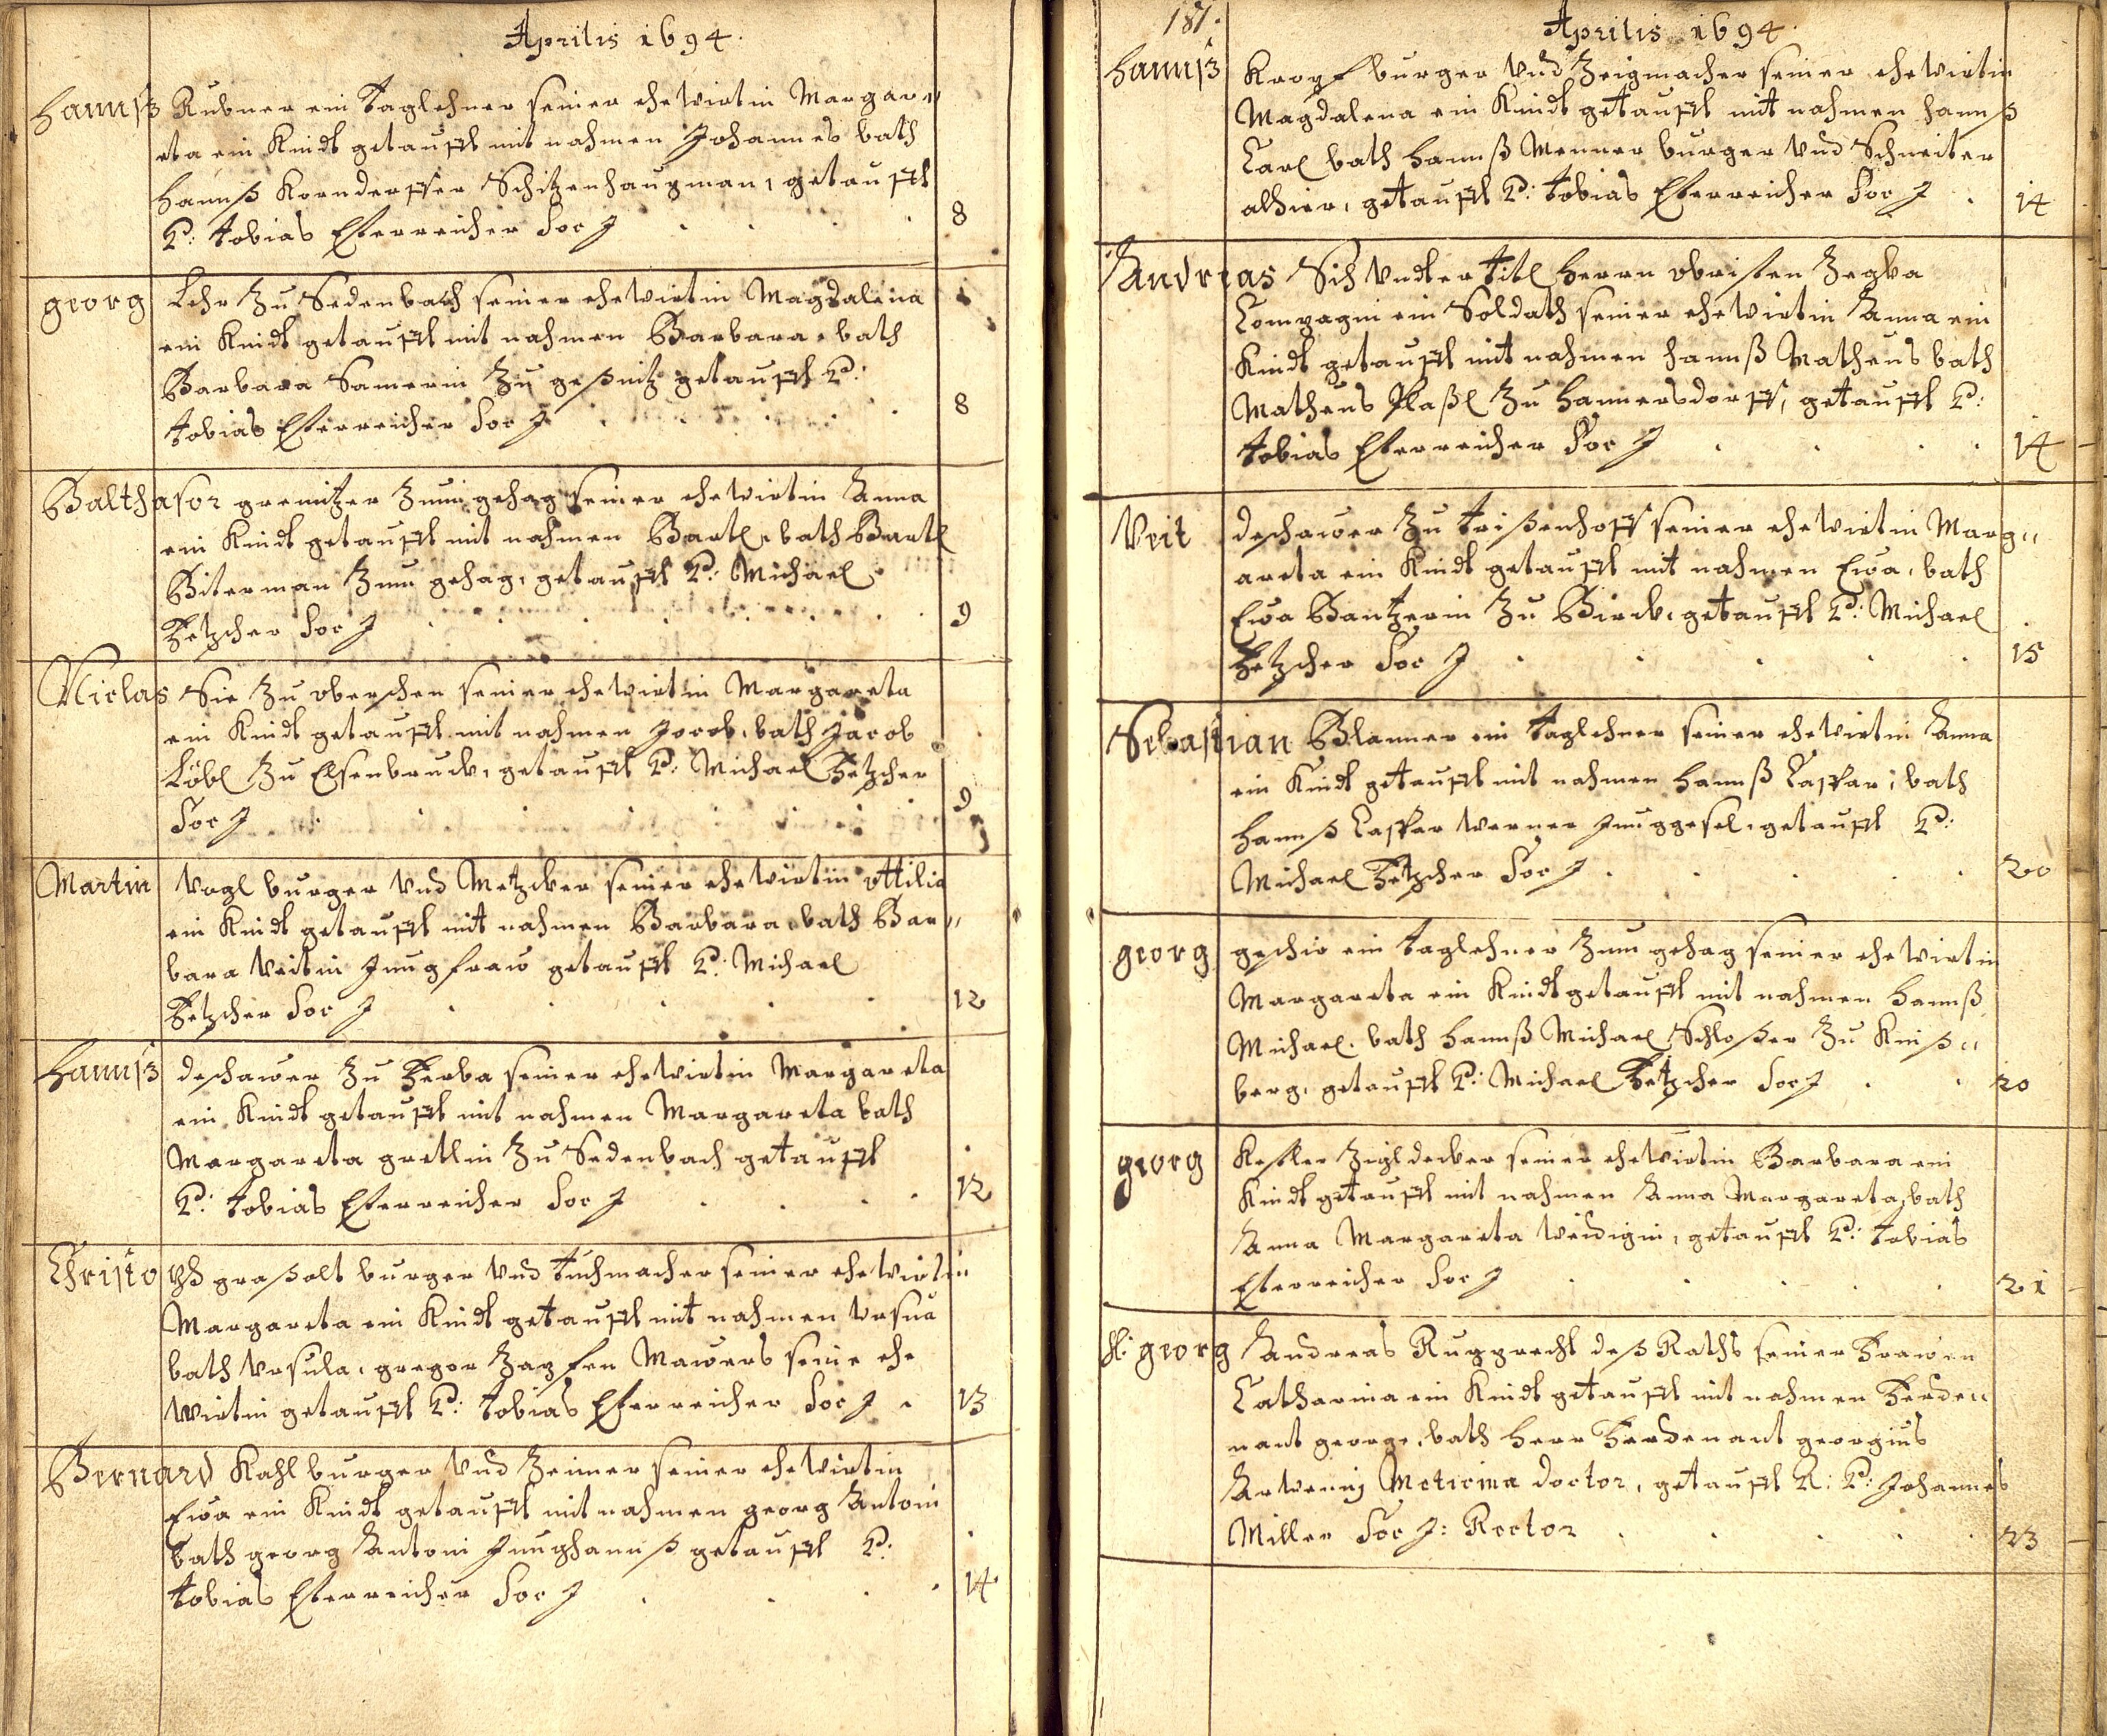 Aprilis 1694.
Hannß Rubner ein Taglehner seiner ehewirtin Margar„
eta ein Kindt getaufft mit nahmen Johannes bath
Hannß Korndorffer Schitzenhaugman, getaufft
P: Tobias Esterreicher Soc J . . . 8
georg Lehr Zu Sedenbach seiner ehewirtin Magdalena
ein Kindt getaufft mit nahmen Barbara, bath
Barbara Samerin Zu geßnitz getaufft P:
Tobias Esterreicher Soc J . . . 8
Balthasor gremitzer Zum gehag seiner ehewirtin Anna
ein Kindt getaufft mit nahmen Bartl, bath Bartl
Biterman Zum gehag, getaufft P: Michael
Hetzcher Soc J . . . 9
Niclas Sir Zu oberschen seiner ehewirtin Margareta
ein Kindt getaufft mit nahmen Jocob, bath Jacob
Löbl Zu Elsenbruck, getaufft P: Michael Hetzcher
Soc J . . . 9
Martin Vogl burger Vnd Metzcker seiner ehewirtin ottilia
ein Kindt getaufft mit nahmen Barbara, bath Bar„
bara Veitin Jungfraw getaufft P: Michael
Hetzcher Soc J . . . 12
Hannß deschawer Zu Herba seiner ehewirtin Margareta
ein Kindt getaufft mit nahmen Margareta bath
Margareta gretlin Zu Sedenbach getaufft
P: Tobias Esterreicher Soc J . . . 12
Christoph graßolt burger Vnd Tuchmacher seiner ehewirtin
Margareta ein Kindt getaufft mit nahmen Vrsua
bath Vrsula, gregor Zapfen Mawers seine ehe
wirtin getaufft P: Tobias Esterreicher Soc J . 13
Bernard Kahl burger Vnd Zeimer seiner ehewirtin
Ewa ein Kindt getaufft mit nahmen georg Antoni
bath georg Antoni Junghannß getaufft P:
Tobias Esterreicher Soc J . . . 14
187.
Aprilis 1694.
Hannß Kropf burger Vnd Zeigmacher seiner ehewirtin
Magdalena ein Kindt getaufft mit nahmen Hannß
Carl bath Hannß Menner burger Vnd Schneiter
alhier, getaufft P: Tobias Esterreicher Soc J . 14
Andreas Sih Vndter Titl Herrn obristen Zegka
Compagni ein Soldath seiner ehewirtin Anna ein
Kindt getaufft mit nahmen Hannß Matheus bath
Matheus Plaßl Zu Hannersdorff, getaufft P:
Tobias Esterreicher Soc J . . . 14
Veit deschawer Zu Trißenhoff seiner ehewirtin Marg„
areta ein Kindt getaufft mit nahmen Ewa, bath
Ewa Bantzerin Zu Birck, getaufft P: Michael
Hetzcher Soc J . . . 15
Sebastian Blanner ein Taglehner seiner ehewirtin Anna
ein Kindt getaufft mit nahmen Hannß Caspar, bath
Hannß Caspar Werner Junggesel, getaufft P:
Michael Hetzcher Soc J . . . 20
georg geschir ein Taglehner Zum gehag seiner ehewirtin
Margareta ein Kindt getaufft mit nahmen Hannß
Michael, bath Hannß Michael Schloßer Zu Kinß„
berg, getaufft P: Michael Hetzcher Soc J . . 20
georg Kestler Zigldecker seiner ehewirtin Barbara ein
Kindt getaufft mit nahmen Anna Margareta, bath
Anna Margareta Weidigin, getaufft P: Tobias
Esterreicher Soc J . . . 21
H: georg Andreas Rupprecht deß Raths seiner Frawen
Catharina ein Kindt getaufft mit nahmen Ferde„
nant george, bath Herr Ferdenant georgius
Meticina doctor, getaufft R: P: Johannes
Miller Soc J: Rector . . . 23